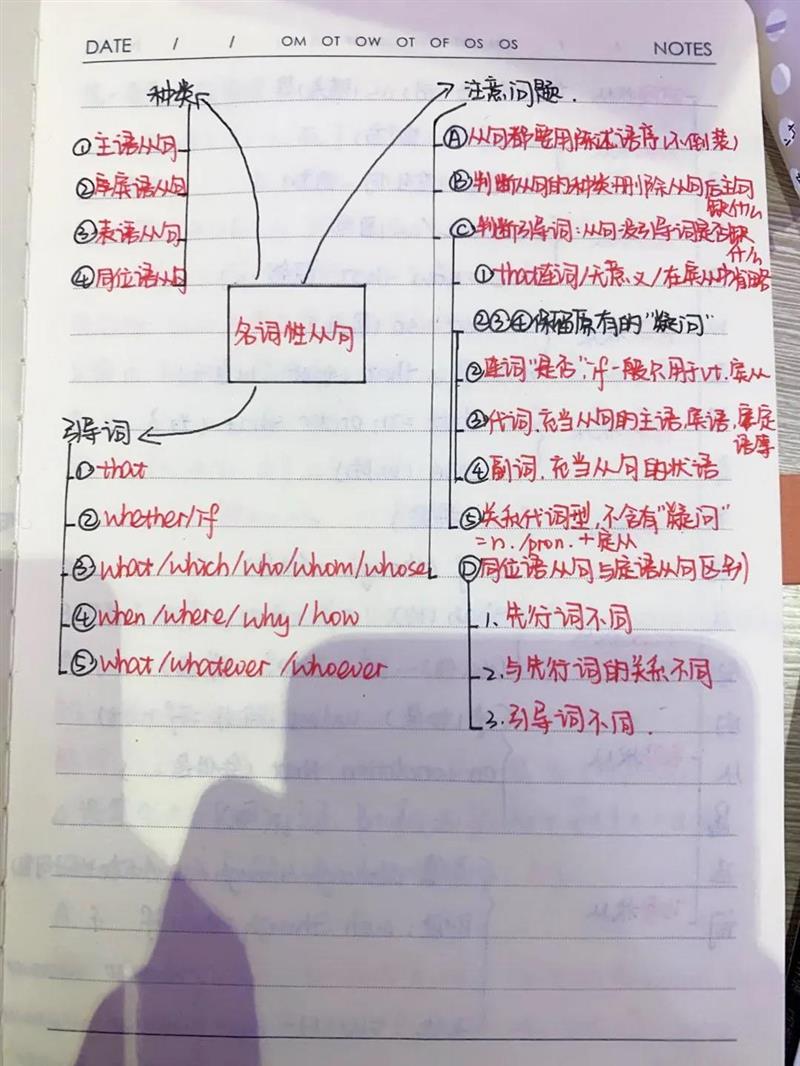 DATE / / OM OT OW OT OF OS OS NOTES
种类
①主语从句
②宾语从句
③表语从句
④同位语从句
名词性从句
引导词
①that
②whether/if
③what/which/who/whom/whose
④when/where/why/how
⑤what/whatever/whoever
注意问题.
Ⓐ从句都要用陈述语序(不倒装)
Ⓑ判断从句的种类:删除从句后主句
缺什么
Ⓒ判断引导词:从句没引导词是否缺
什么
①that连词/无意义/在宾从中省略
②③④保留原有的"疑问"
②连词"是否",if一般只用于vt.宾从
③代词,充当从句的主语,宾语,定
语等
④副词,充当从句的状语
⑤关系代词型,不含有"疑问"
=n./pron.+定从
Ⓓ同位语从句与定语从句区别
1.先行词不同
2.与先行词的关系不同
3.引导词不同.